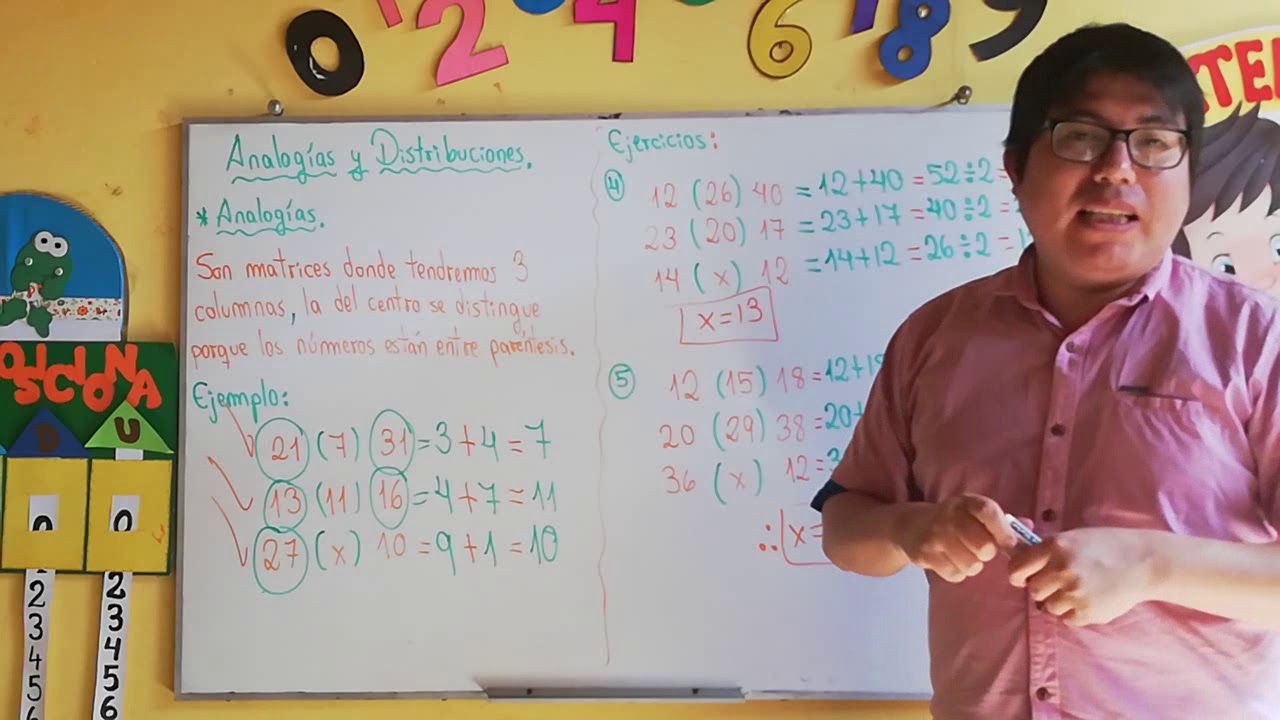 0 2 4 6 8 9
Analogías y Distribuciones.
* Analogías.
Son matrices donde tendremos 3
columnas, la del centro se distingue
porque los números están entre paréntesis.
Ejemplo:
21 (7) 31 = 3+4 = 7
13 (11) 16 = 4+7 = 11
27 (x) 10 = 9+1 = 10
Ejercicios:
4
12 (26) 40 = 12+40 = 52÷2 =
23 (20) 17 = 23+17 = 40÷2 =
14 (x) 12 = 14+12 = 26÷2 =
x=13
5
12 (15) 18 = 12+
20 (29) 38 = 20+
36 (x) 12 =
∴ x=
D U
0 0
2 2
3 3
4 4
5 5
6 6